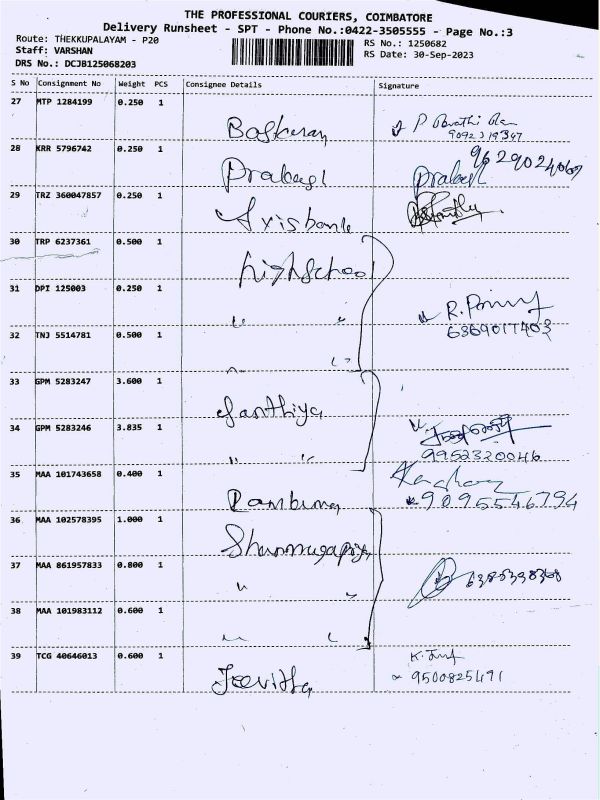 THE PROFESSIONAL COURIERS, COIMBATORE
Delivery Runsheet - SPT - Phone No.:0422-3505555 - Page No.:3
Route: THEKKUPALAYAM - P20
RS No.: 1250682
Staff: VARSHAN
RS Date: 30-Sep-2023
DRS No.: DCJB125068203
S No Consignment No Weight PCS Consignee Details Signature
27 MTP 1284199 0.250 1
Baskaran
9092319347
28 KRR 5796742 0.250 1
9629024067
Prakash Prakash
29 TRZ 360047857 0.250 1
Axisbank
30 TRP 6237361 0.500 1
highschool
31 DPI 125003 0.250 1
" "
6369017403
32 TNJ 5514781 0.500 1
33 GPM 5283247 3.600 1
Santhiya
34 GPM 5283246 3.835 1
" " 9952320046
35 MAA 101743658 0.400 1
9095546794
36 MAA 102578395 1.000 1
Shanmugapriya
37 MAA 861957833 0.800 1
" "
38 MAA 101983112 0.600 1
39 TCG 40646013 0.600 1
Jeevitha 9500825491